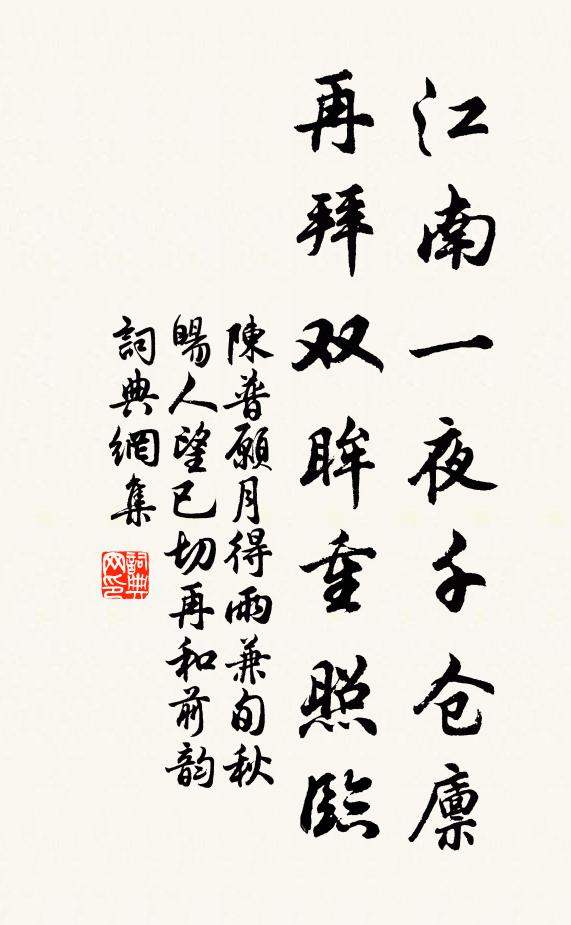 江南一夜千仓廪
再拜双眸重照臨
陳普願月得雨兼旬秋
暘人望已切再和前韵
詞典網集
詞典
网印